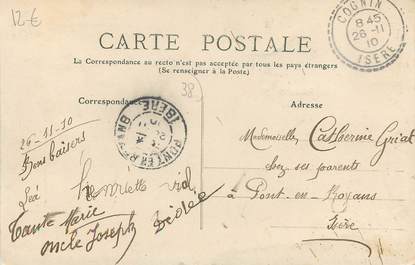 12€
COGNIN
8 45
26 -11
10
ISERE
CARTE POSTALE
La Correspondance au recto n'est pas acceptée par tous les pays étrangers
(Se renseigner à la Poste)
38
Correspondance
Adresse
PONT-EN-R
ISERE
26-11-10
Bons baisers
Léa
Henriette vial
Tante Marie
oncle Joseph
Mademoiselle Catherine Griat
chez ses parents
à Pont-en-Royans
Isère